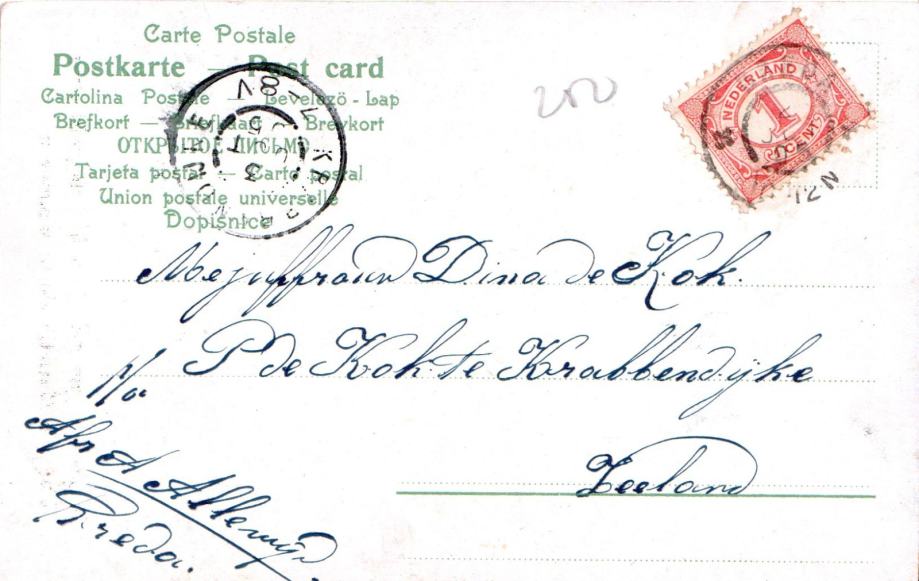 Carte Postale
Postkarte — Post card
Cartolina Postale — Levelező-Lap
Brefkort — Briefkaart — Brevkort
ОТКРЫТОЕ ПИСЬМО
Tarjeta postal — Carto postal
Union postale universelle
Dopisnice
200
NEDERLAND
1
CENT
12 N
Mejuffrouw Dina de Kok.
p/a P de Kok te Krabbendijke
Zeeland
Afz A Allewijn
Breda.